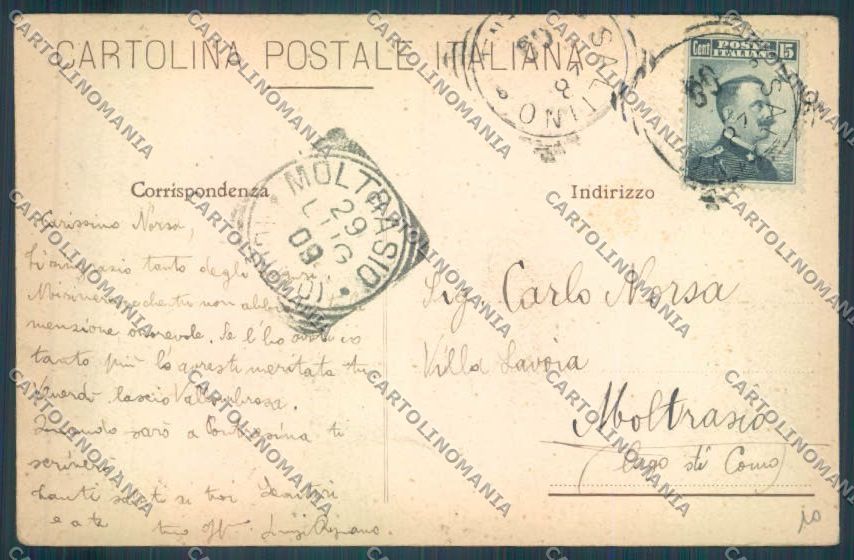 CARTOLINA POSTALE ITALIANA
Cent POSTE ITALIANE 15
SALTINO
09
Corrispondenza
Indirizzo
MOLTRASIO
29
LUG
09
(COMO)
Carissimo Norsa,
Ti ringrazio tanto degli
menzione onorevole. Se l'ho avuta io
tanto più la avresti meritata tu
Venerdì lascio Vallombrosa.
Quando sarò a ti
scriverò
tanti saluti ai tuoi Genitori
e a te tuo aff. Luigi
Sig. Carlo Norsa
Villa Savoia
Moltrasio
(Lago di Como)
10
CARTOLINOMANIA